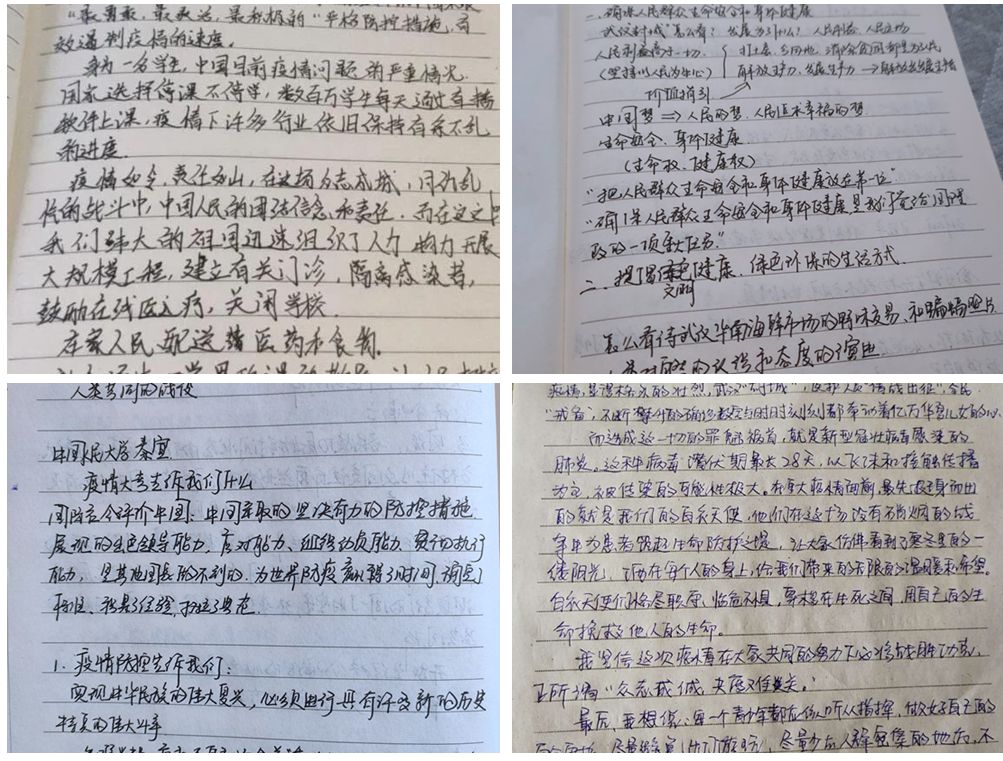 "最勇敢,最灵活,最积极的"严格防控措施,有
效遏制疫情的速度。
身为一名学生,中国目前疫情问题的严重情况
国家选择停课不停学,数百万学生每天通过直播
软件上课,疫情下许多行业依旧保持有条不乱
的进度.
疫情如令,责任如山,在这场众志成城,同
的战斗中,中国人民的团结信念和责任.而在这之
我们强大的祖国迅速组织了人力物力开展
大规模工程,建立有关门诊,隔离感染者,
鼓励在线医疗,关闭学校.
在家人民配送着医药和食物.
一.确保人民群众生命安全和身体健康
武汉封城"怎么看? 发展为了什么? 人民利益、人民立场
人民利益高于一切.
(坚持以人民为中心)
解放生产力、发展生产力
价值指引
中国梦 => 人民的梦.人民追求幸福的梦
生命安全、身体健康
(生命权、健康权)
"把人民群众生命安全和身体健康放在第一位"
"确保人民群众生命安全和身体健康是我们党治国理
政的一项重大任务"
二、提倡健康、绿色环保的生活方式
文明
怎么看待武汉华南海鲜市场的野味交易、和蝙蝠照片
人类对自然的认识和态度的演进
人类共同的战役
中国人民大学秦宣
疫情大考告诉我们什么
国际社会评价中国:中国采取的坚决有力的防控措施
展现的出色领导能力、应对能力、组织动员能力、贯彻执行
能力,是其他国家做不到的.为世界防疫赢得了时间、
积累了经验,树立了典范
1.疫情防控告诉我们:
实现中华民族的伟大复兴,必须进行具有许多新的历史
特点的伟大斗争
"戒备",不断攀升的确诊数字与时时刻刻都牵动着亿万华夏儿女的心
而造成这一切的罪魁祸首,就是新型冠状病毒感染的
肺炎。这种病毒潜伏期最大28天,以飞沫和接触传播
为主,被传染的可能性极大。在重大疫情面前,最先挺身而出
的就是我们的白衣天使,他们在这场没有硝烟的战
争中为患者筑起生命防护之堤,让大家仿佛看到了寒冬里的一
缕阳光,洒在每个人的身上,给我们带来的无限的温暖和希望。
白衣天使们恪尽职守、临危不惧,穿梭在生死之间,用自己的生
命挽救他人的生命。
我坚信这次疫情在大家共同的努力下必将战胜,
正所谓"众志成城,共度难关。"
最后,我想说,每一个青少年都应该听从指挥,做好自己的
尽量少去人群密集的地方,不